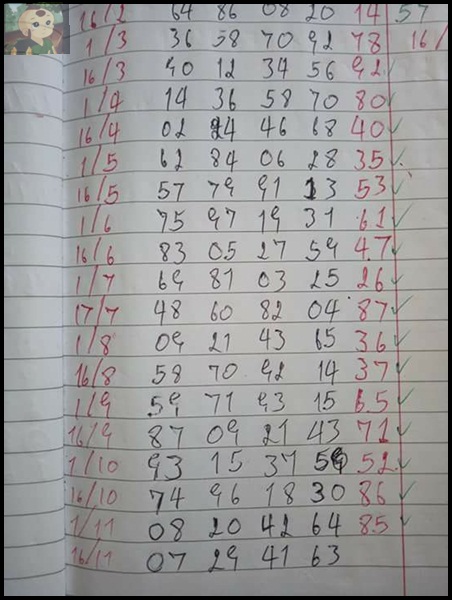 16/2 64 86 08 20 14 57
1/3 36 58 70 92 78 16/
16/3 90 12 34 56 92
1/4 14 36 58 70 80
16/4 02 24 46 68 40 ✓
1/5 62 84 06 28 35 ✓
16/5 57 79 91 13 53 ✓
1/6 75 97 19 31 61 ✓
16/6 83 05 27 59 47 ✓
1/7 69 81 03 25 26 ✓
17/7 48 60 82 04 87 ✓
1/8 09 21 43 65 36 ✓
16/8 58 70 92 14 37 ✓
1/9 59 71 93 15 65 ✓
16/9 87 09 21 43 71 ✓
1/10 93 15 37 59 52 ✓
16/10 74 96 18 30 86 ✓
1/11 08 20 42 64 85 ✓
16/11 07 29 41 63